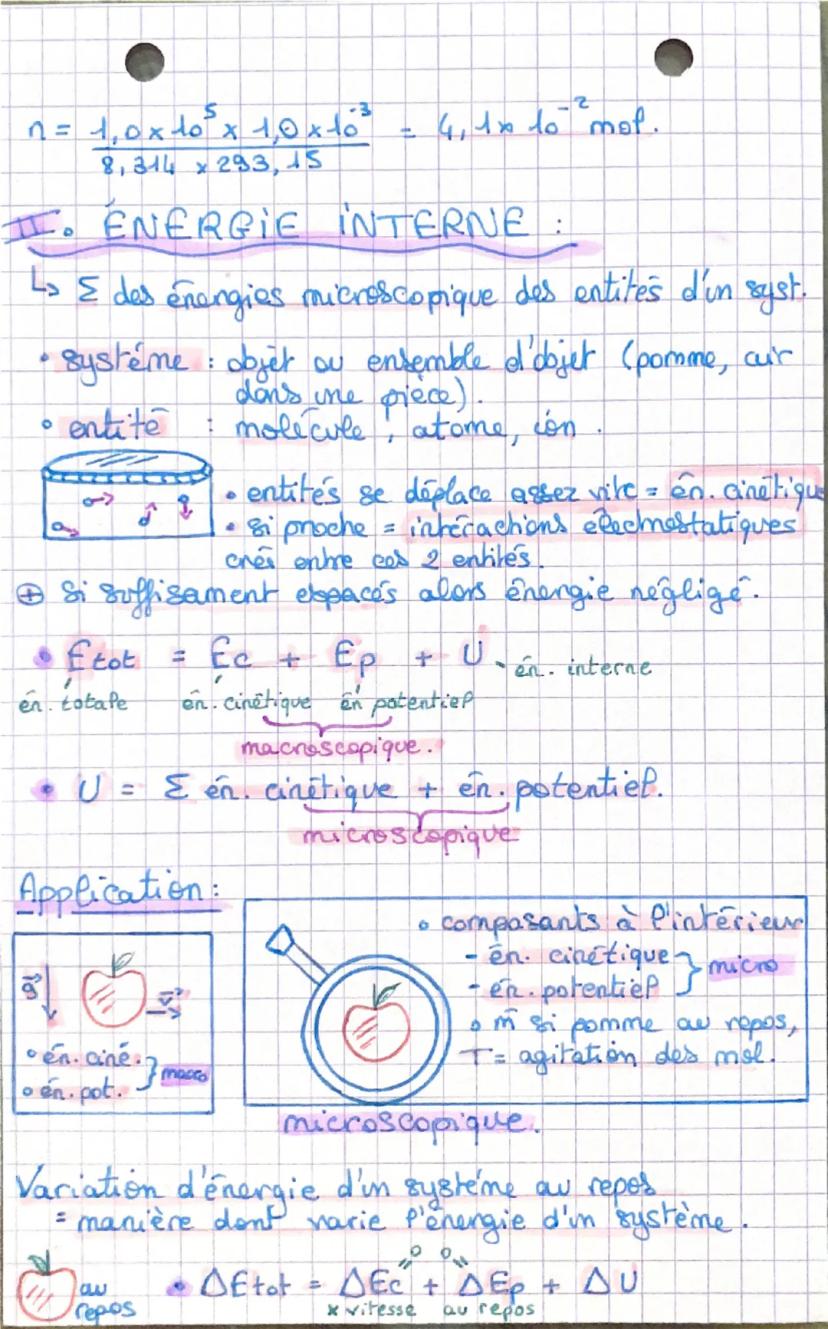 n = 1,0 x 10^5 x 1,0 x 10^-3 / 8,314 x 293,15 = 4,1 x 10^-2 mol.
II. ÉNERGIE INTERNE :
↳ Σ des énergies microscopique des entités d'un syst.
• systéme : objet ou ensemble d'objet (pomme, air
dans une pièce).
• entité : molécule, atome, ion.
• entités se déplace assez vite = én. cinétique
• si proche = intéractions électrostatiques
créé entre ces 2 entités.
⊕ Si suffisament espacés alors énergie négligé.
• Etot = Ec + Ep + U - én. interne
én. totale én. cinétique én potentiel
macroscopique.
• U = Σ én. cinétique + én. potentiel.
microscopique
Application :
• composants à l'intérieur
- én. cinétique
- én. potentiel } micro
• m̂ si pomme au repos,
T = agitation des mol.
g→ v→
• én. ciné.
• én. pot. } macro
microscopique.
Variation d'énergie d'un systéme au repos
= manière dont varie l'énergie d'un système.
au
repos
• ΔEtot = ΔEc + ΔEp + ΔU
0 0
x vitesse au repos